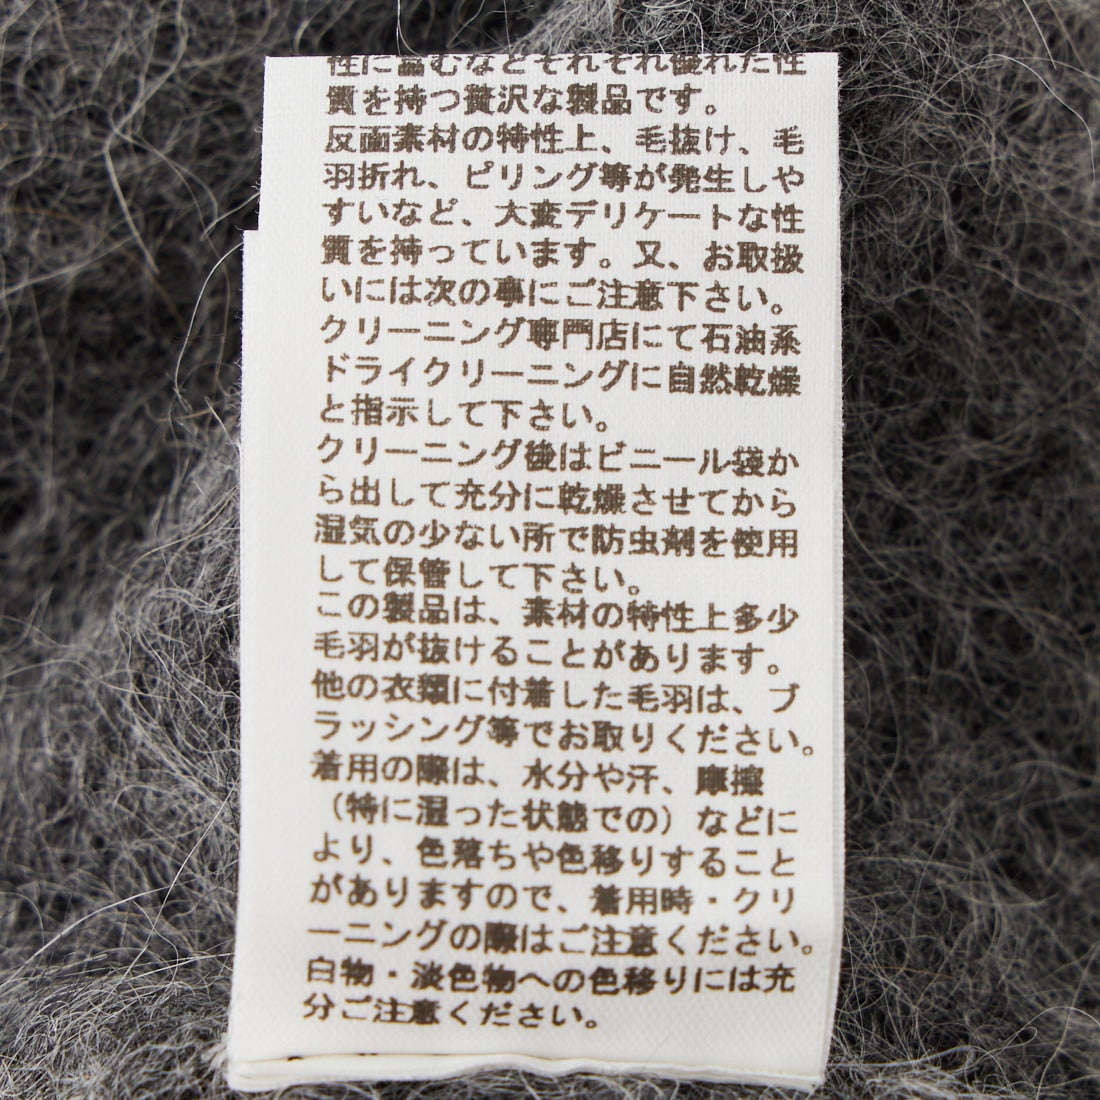 性に富むなどそれぞれ優れた性
質を持つ贅沢な製品です。
反面素材の特性上、毛抜け、毛
羽折れ、ピリング等が発生しや
すいなど、大変デリケートな性
質を持っています。又、お取扱
いには次の事にご注意下さい。
クリーニング専門店にて石油系
ドライクリーニングに自然乾燥
と指示して下さい。
クリーニング後はビニール袋か
ら出して充分に乾燥させてから
湿気の少ない所で防虫剤を使用
して保管して下さい。
この製品は、素材の特性上多少
毛羽が抜けることがあります。
他の衣類に付着した毛羽は、ブ
ラッシング等でお取りください。
着用の際は、水分や汗、摩擦
（特に湿った状態での）などに
より、色落ちや色移りすること
がありますので、着用時・クリ
ーニングの際はご注意ください。
白物・淡色物への色移りには充
分ご注意ください。